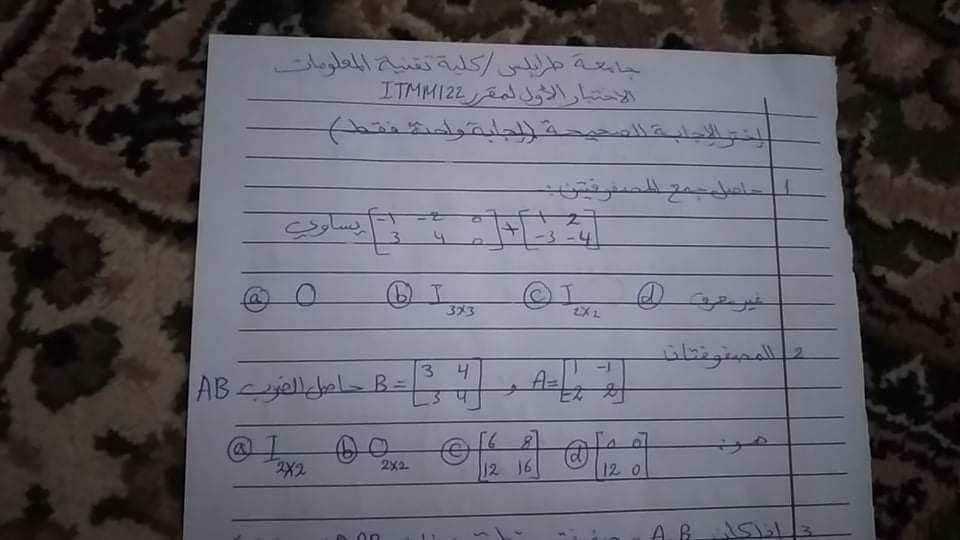 جامعة طرابلس / كلية تقنية المعلومات
الاختبار الأول لمقرر ITMM122
إختر الإجابة الصحيحة (إجابة واحدة فقط)
1 حاصل جمع المصفوفتين:
[1 2; -3 -4] + [-1 -2 0; 3 4 0] يساوي
ⓐ O ⓑ I 3x3 ⓒ I 2x2 ⓓ غير معرف
2 المصفوفتان
A=[1 -1; -2 2] , B=[3 4; 3 4] حاصل الضرب AB
هو:
ⓐ I 2x2 ⓑ O 2x2 ⓒ [6 8; 12 16] ⓓ [0 0; 12 0]
3 إذا كان A, B